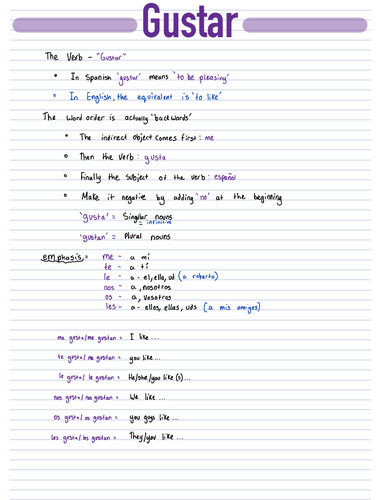 Gustar
The Verb - "Gustar"
• In Spanish 'gustar' means 'to be pleasing'
• In English, the equivalent is 'to like'
The word order is actually 'backwords'
• The indirect object comes first: me
• Then the verb: gusta
• Finally the subject of the verb: español
• Make it negative by adding 'no' at the beginning
'gusta' = Singular nouns
= infinitive
'gustan' = Plural nouns
emphasis:
me - a mí
te - a tí
le - a - el, ella, ud (a roberto)
nos - a, nosotros
os - a, vosotros
les - a - ellos, ellas, uds (a mis amigos)
me gusta/me gustan = I like ...
te gusta/me gustan = you like ...
le gusta/le gustan = He/she/you like (s) ...
nos gusta/nos gustan = We like ...
os gusta/os gustan = you guys like ...
les gusta/les gustan = They/you like ...